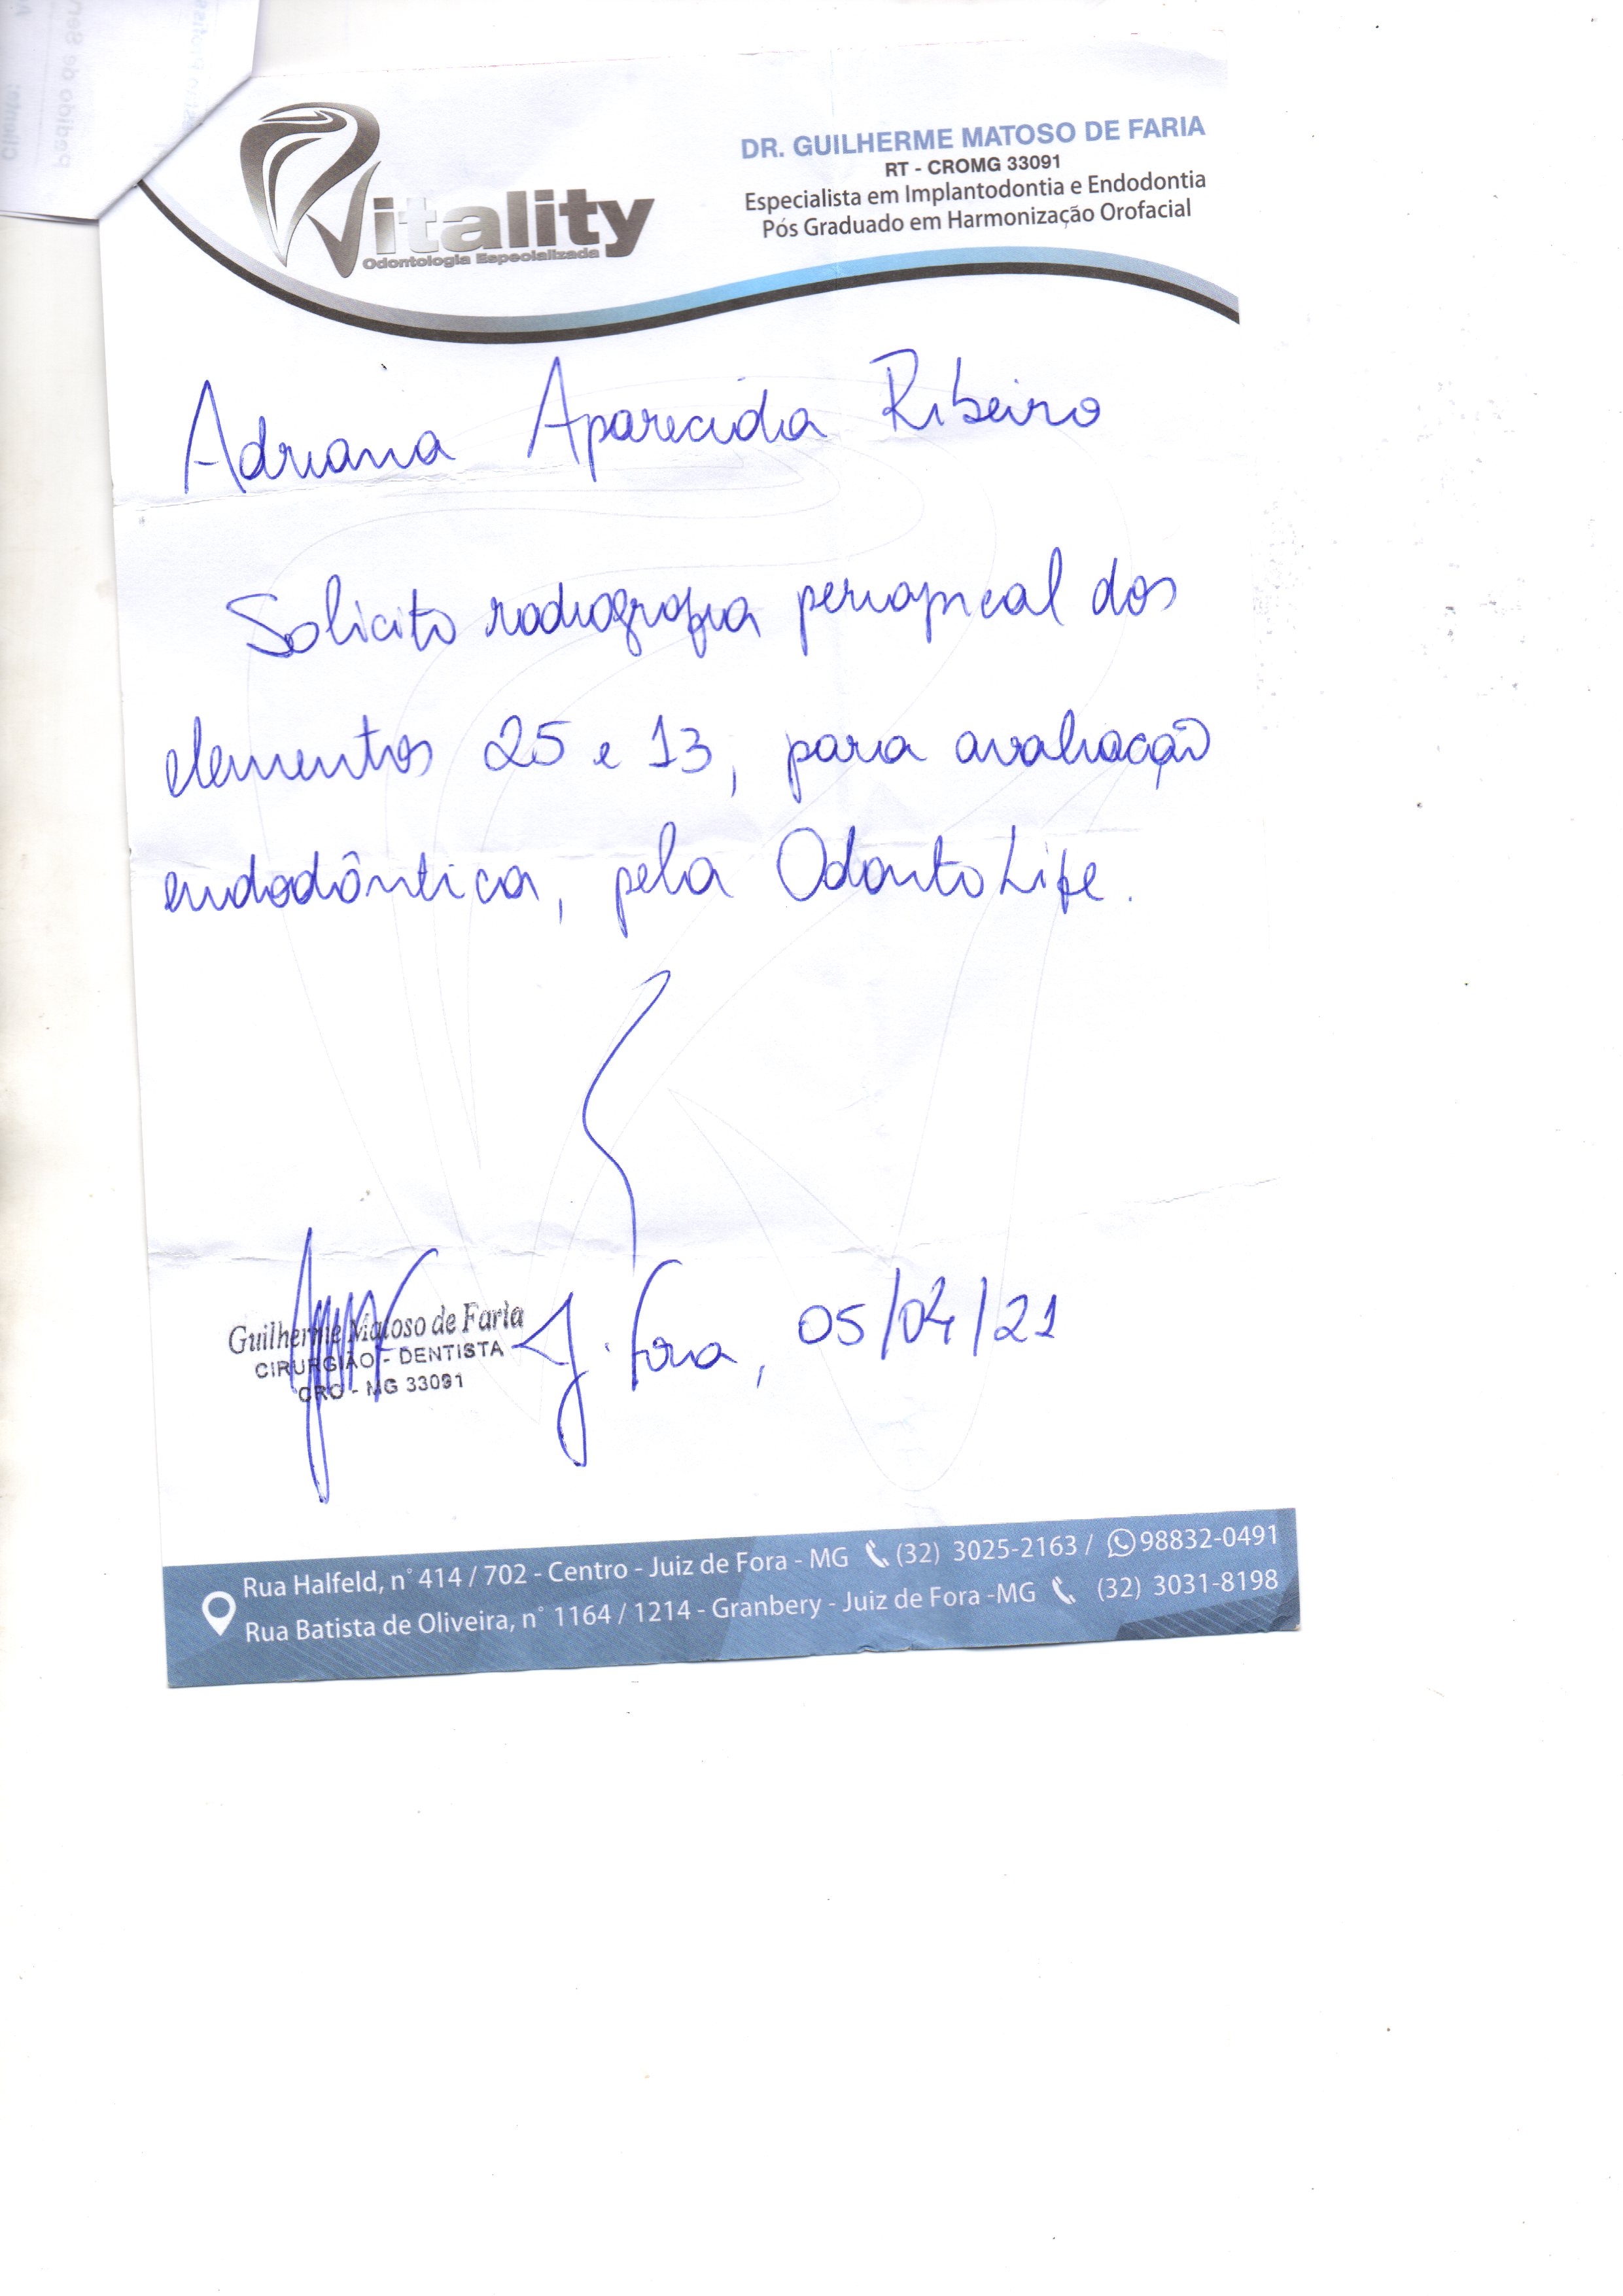 Vitality
Odontologia Especializada
DR. GUILHERME MATOSO DE FARIA
RT - CROMG 33091
Especialista em Implantodontia e Endodontia
Pós Graduado em Harmonização Orofacial
Adriana Aparecida Ribeiro
Solicito radiografia periapical dos
elementos 25 e 13, para avaliação
endodôntica, pela OdontoLife.
Guilherme Matoso de Faria
CIRURGIÃO - DENTISTA
CRO - MG 33091
J. Fora, 05/04/21
Rua Halfeld, n° 414 / 702 - Centro - Juiz de Fora - MG (32) 3025-2163 / 98832-0491
Rua Batista de Oliveira, n° 1164 / 1214 - Granbery - Juiz de Fora -MG (32) 3031-8198
Pedido de Ser
Cliente: